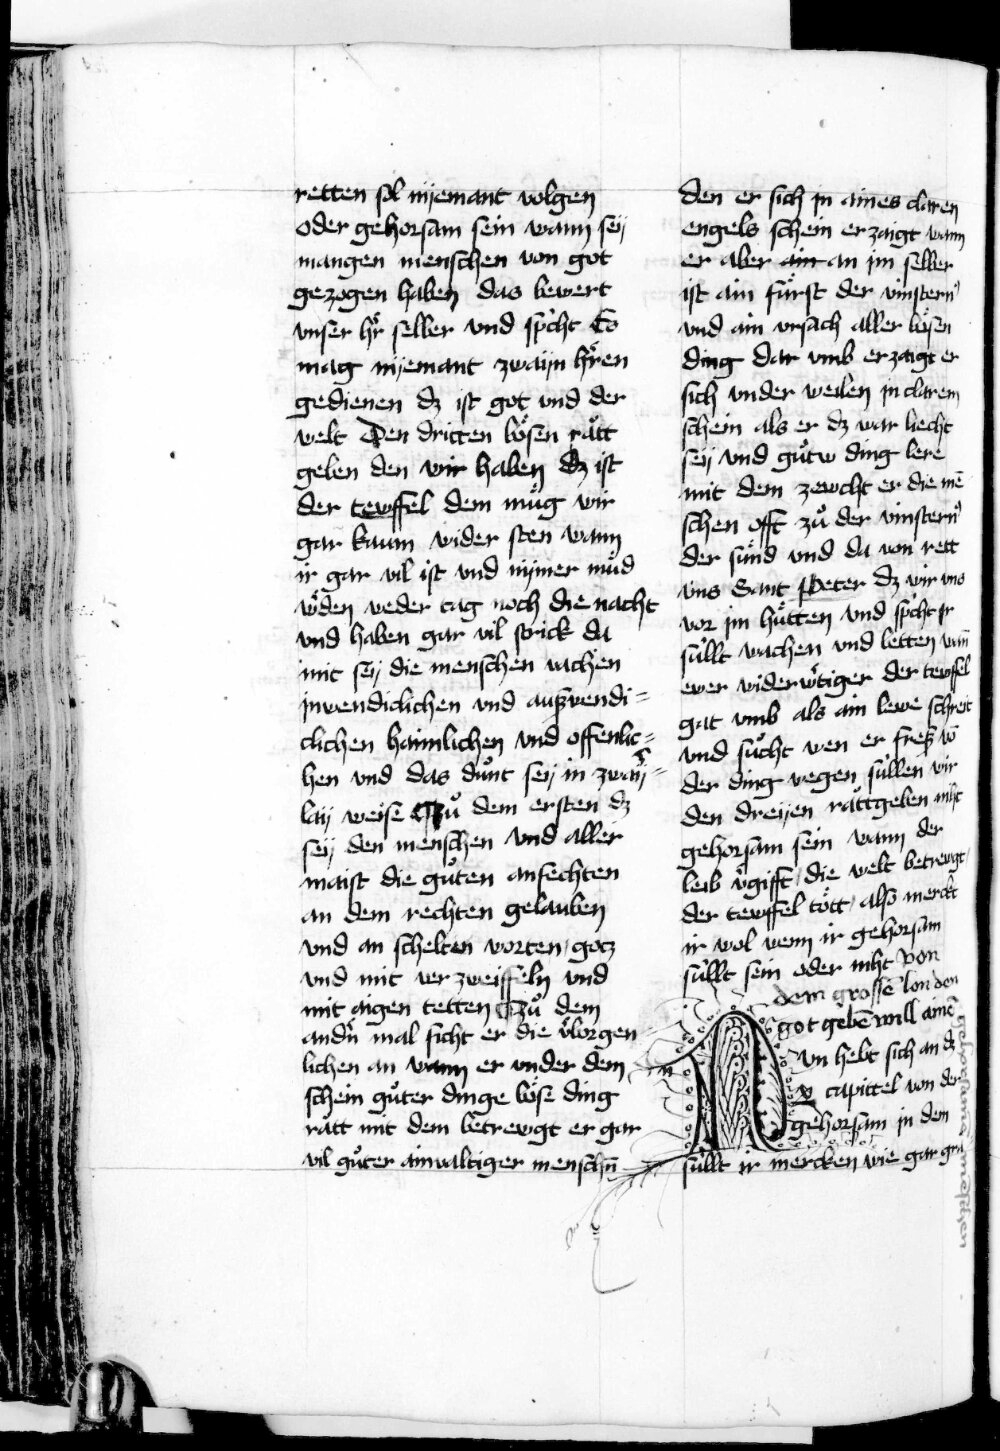 retten sol nyemant volgen
oder gehorsam sein wann sey
mangen menschen von got
gezogen haben das bewert
vnser hr̃ selber vnd spͥcht Es
mag nyemant zwaÿn hr̃en
gedienen dz ist got vnd der
welt Den dritten bösen rått
geben den wir haben Dz ist
der tewffel dem müg wir
gar kaum wider sten wann
ir gar vil ist vnd nymer müd
wͤden weder tag noch die nacht
vnd haben gar vil strick da
mit seÿ die menschen vachen
jnwendiclichen vnd ausswendi=
clichen haimlichen vnd offenlic=
hen vnd das důnt seÿ in zwaÿ=
laÿ weise Zů dem ersten dz
seÿ den menschen vnd aller
maist die gůten anfechten
an dem rechten gelauben
vnd an schelten worten / gotz
vnd mit verzweiffeln vnd
mit aigen tetten Zů dem
andn̄ mal ficht er die v̓borgen=
lichen an wann er vnder dem
schein gůter dinge böse ding
rått mit dem betrewgt er gar
vil gůter ainvaltiger menschn̄
den er sich jn aines claren
engels schein erzaigt wann
er aber ain an jm selber
ist ain fürst der vinstern̓
vnd ain vrsach aller bösen
ding dar vmb erzaigt er
sich vnder weilen jn clarem
schein als er dz war liecht
seÿ vnd gůtw ding lere
mit dem zewcht er die mē
schen offt zů der vinstern̓
der sünd vnd da von rett
vns Sant Peter dz wir vns
vor jm hütten vnd spͥcht jr
süllt wachen vnd betten wañ
ewer widerwͤtiger der tewffel
gat vmb als ain lewe schreit
vnd sůcht wen er fress vō
der ding wegen süllen wir
den dreÿen råttgeben niht
gehorsam sein wann der
leib v̓gifft / die welt betrewgt /
der tewffel tött / also merckt
ir wol wem ir gehorsam
süllt sein oder niht Von
dem grossē lon den
got gebē will ainē
gehorsamē menschen
Nvn hebt sich an dz
v capittel von der
gehorsam jn dem
süllt ir mercken wie gar gra